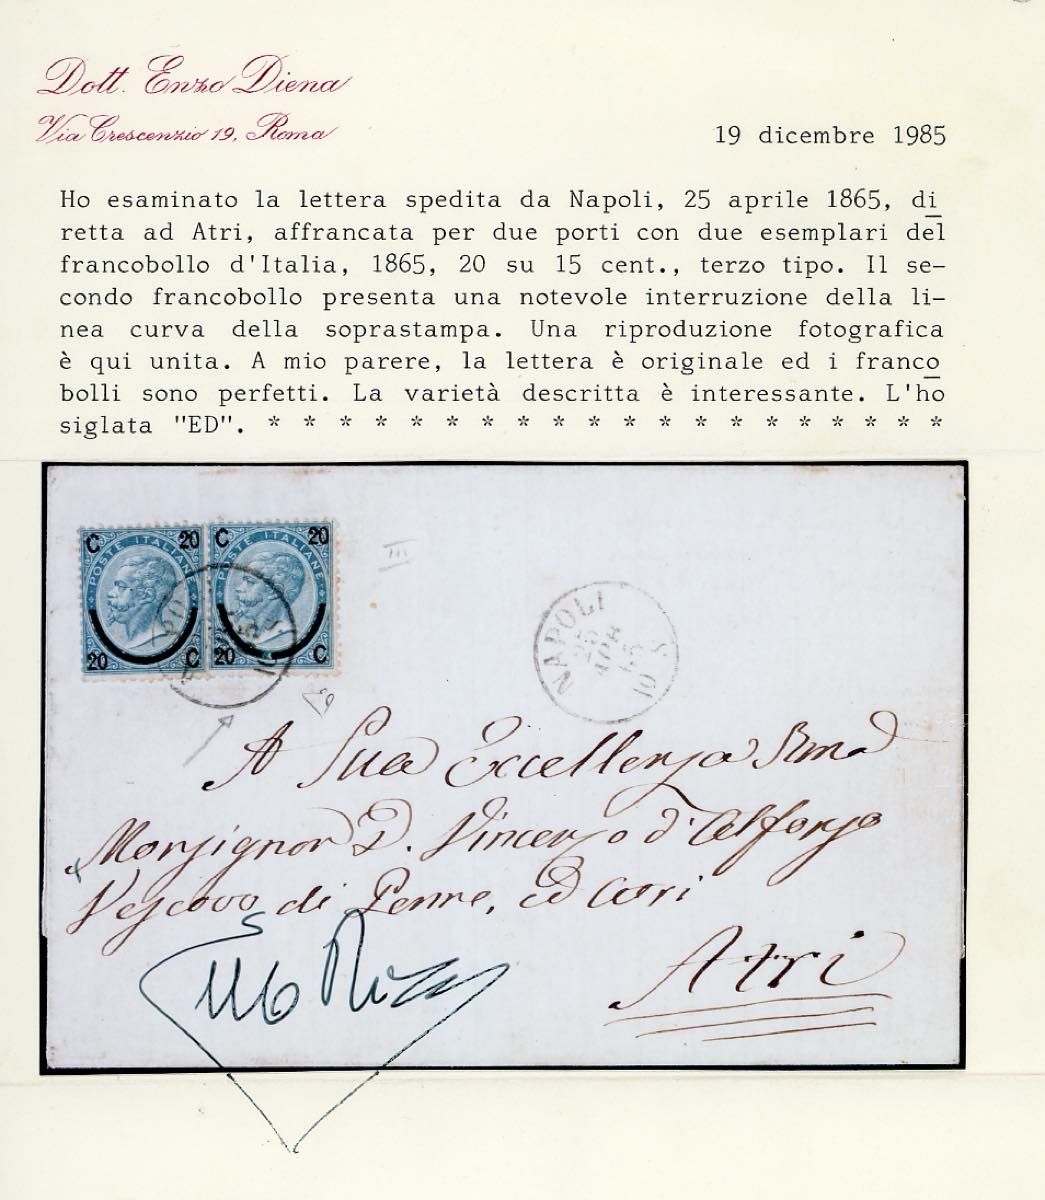 Dott. Enzo Diena
Via Crescenzio 19, Roma
19 dicembre 1985
Ho esaminato la lettera spedita da Napoli, 25 aprile 1865, di
retta ad Atri, affrancata per due porti con due esemplari del
francobollo d'Italia, 1865, 20 su 15 cent., terzo tipo. Il se-
condo francobollo presenta una notevole interruzione della li-
nea curva della soprastampa. Una riproduzione fotografica
è qui unita. A mio parere, la lettera è originale ed i franco
bolli sono perfetti. La varietà descritta è interessante. L'ho
siglata "ED". * * * * * * * * * * * * * * * * * * *
C 20 C 20
POSTE ITALIANE POSTE ITALIANE
20 C 20 C
III
NAPOLI
25
APR
65
10 S
A Sua Eccellenza Rma
Monsignor D. Vincenzo d'Alfonso
Vescovo di Penne, ed Atri
Atri